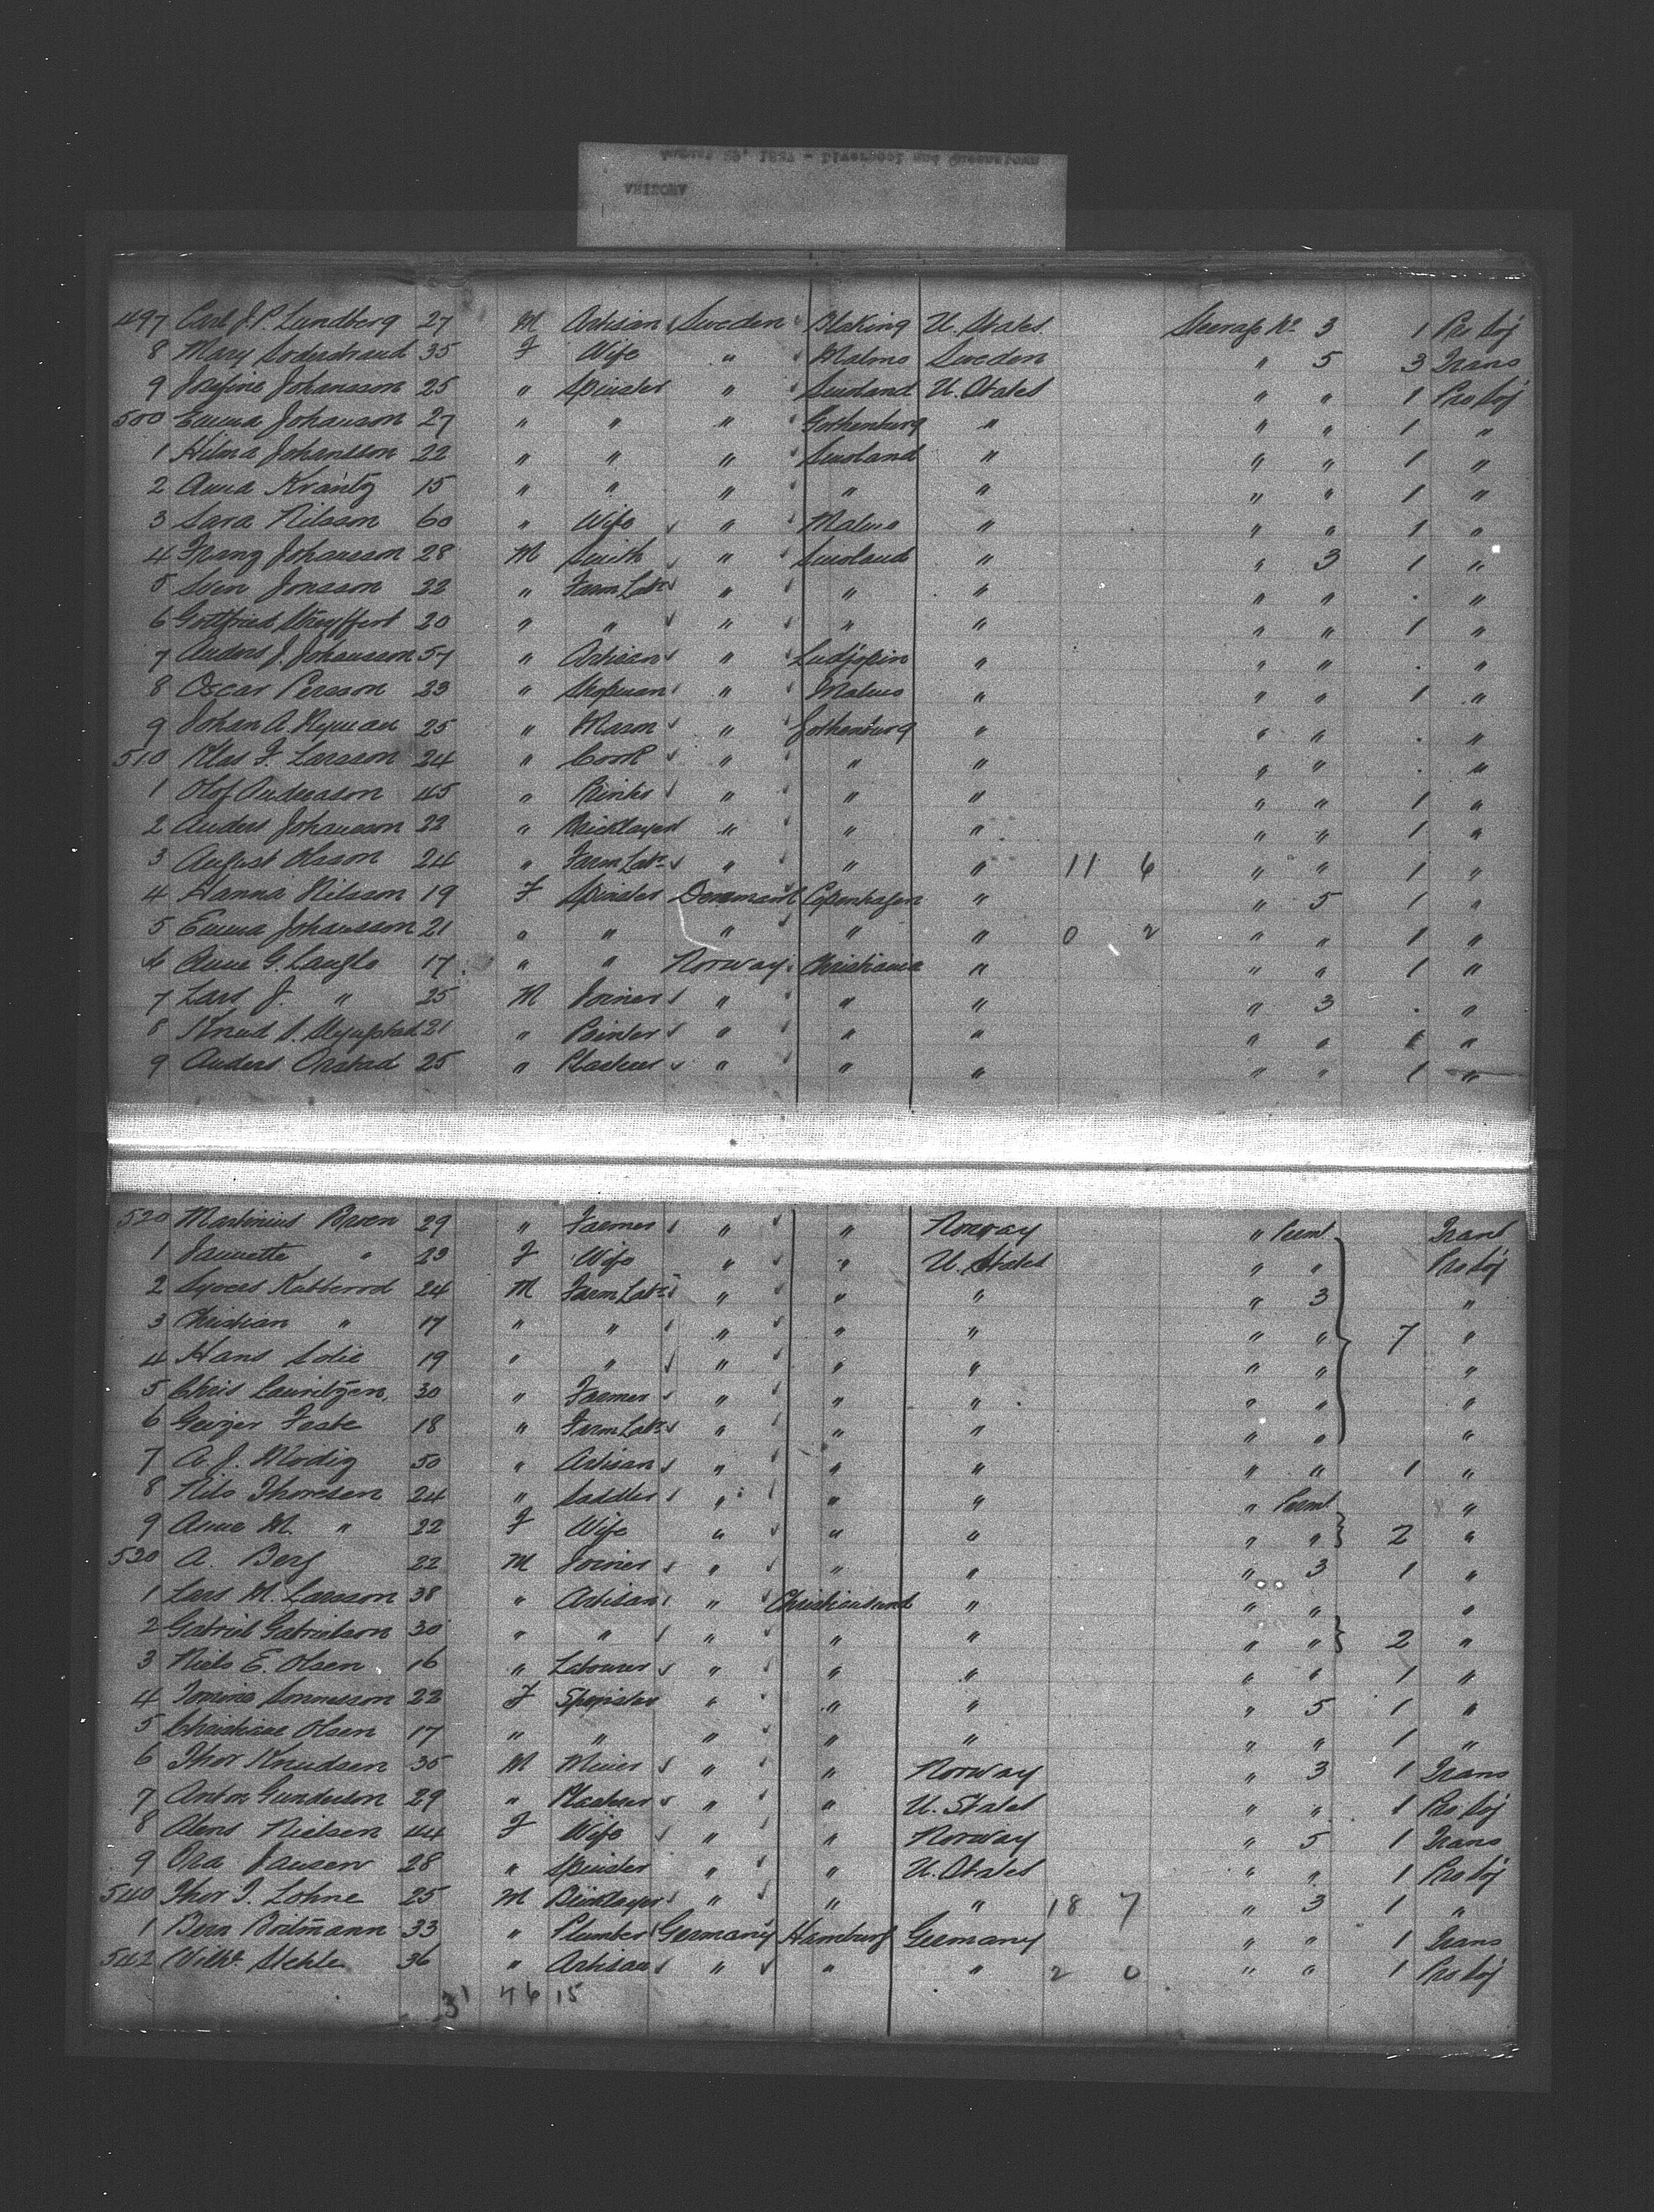 August 29, 1887 - Liverpool and Queenstown
ARIZONA
497 Carl J. P. Lundberg 27 M Artisan Sweden Blaking U. States Steerage No 3 1 Pro Soj
8 Mary Soderstrand 35 F Wife " Malmo Sweden " 5 3 Trans
9 Josefine Johansson 25 " Spinster " Smoland U. States " " 1 Pro Soj
500 Emma Johanson 27 " " " Gothenburg " " " 1 "
1 Hilma Johansson 22 " " " Smoland " " " 1 "
2 Anna Krantz 15 " " " " " " " 1 "
3 Sara Nilsson 60 " Wife " Malmo " " " 1 "
4 Franz Johansson 28 M Smith " Smoland " " 3 1 "
5 Sven Jonsson 22 " Farm Labr " " " " " . "
6 Gottfried 20 " " " " " " " 1 "
7 Anders J. Johansson 57 " Artisan " " " " . "
8 Oscar Persson 23 " Shopman " Malmo " " " 1 "
9 Johan A. 25 " Mason " Gothenburg " " " . "
510 Klas F. Larsson 24 " Cook " " " " " . "
1 Olof Andreason 45 " " " " " " 1 "
2 Anders Johansson 22 " Bricklayer " " " " " 1 "
3 August Olsson 24 " Farm Labr " " " 11 6 " " 1 "
4 Hanna Nilsson 19 F Spinster Denmark Copenhagen " " 5 1 "
5 Emma Johansson 21 " " " " " 0 2 " " 1 "
6 Anne G. Langlo 17 " " Norway Christiania " " " 1 "
7 Lars J. " 25 M Joiner " " " " 3 . "
8 Knud S. 21 " Painter " " " " " 1 "
9 Anders Orstad 25 " " " " " " 1 "
520 Martinius Broen 29 " Farmer " " Norway " Permt Trans
1 Jannette " 23 F Wife " " U. States " " Pro Soj
2 24 M Farm Labr " " " " 3 "
3 Christian " 17 " " " " " " " 7 "
4 Hans Solie 19 " " " " " " " "
5 Chris Lauritzen 30 " Farmer " " " " " "
6 Feste 18 " Farm Labr " " " " " "
7 A. J. Modig 50 " Artisan " " " " " 1 "
8 Nils Thoresen 24 " Saddler " " " " Permt "
9 Anne M. " 22 F Wife " " " " " 2 "
530 A. Berg 22 M Joiner " " " " 3 1 "
1 Lars M. Larsson 38 " Artisan " Christiansand " " " "
2 Gabriel Gabrielson 30 " " " " " " " 2 "
3 Niels E. Olsen 16 " Labourer " " " " " 1 "
4 Tomine Sonnesson 22 F Spinster " " " " 5 1 "
5 Christiane Olsen 17 " " " " " " " 1 "
6 Thor Knudsen 35 M Miner " " Norway " 3 1 Trans
7 Anton Gunderson 29 " " " U. States " " 1 Pro Soj
8 Nielsen 44 F Wife " " Norway " 5 1 Trans
9 Ora Jansen 28 " Spinster " " U. States " " 1 Pro Soj
540 Thor T. Lohne 25 M Bricklayer " " " 18 7 " 3 1 "
1 Bern 33 " Plumber Germany Hamburg Germany " " 1 Trans
542 Wilh. Stehle 36 " Artisan " " " 2 0 " " 1 Pro Soj
31 46 15